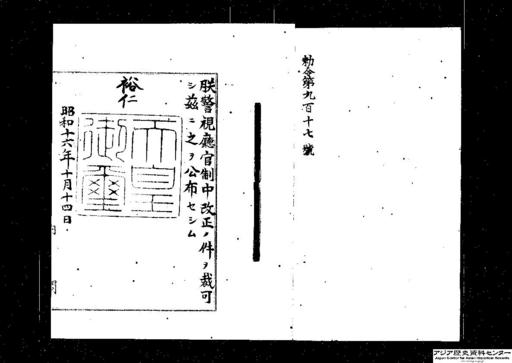 勅令第九百十七號
朕警視廳官制中改正ノ件ヲ裁可
シ茲ニ之ヲ公布セシム
裕仁
天皇
御璽
昭和十六年十月十四日
アジア歴史資料センター
Japan Center for Asian Historical Records